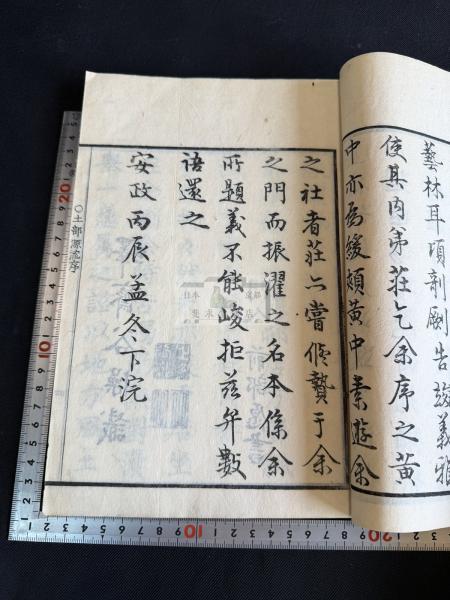 藝林耳頃剞劂告竣義雅
使其内弟莊乞余序之黄
中亦為緩頬黄中業遊余
之社者莊亦嘗修贄于余
之門而振濯之名本係余
所題義不能峻拒茲弁數
語還之
安政丙辰孟冬下浣
〇土部源流序
日本
20
10
10
20